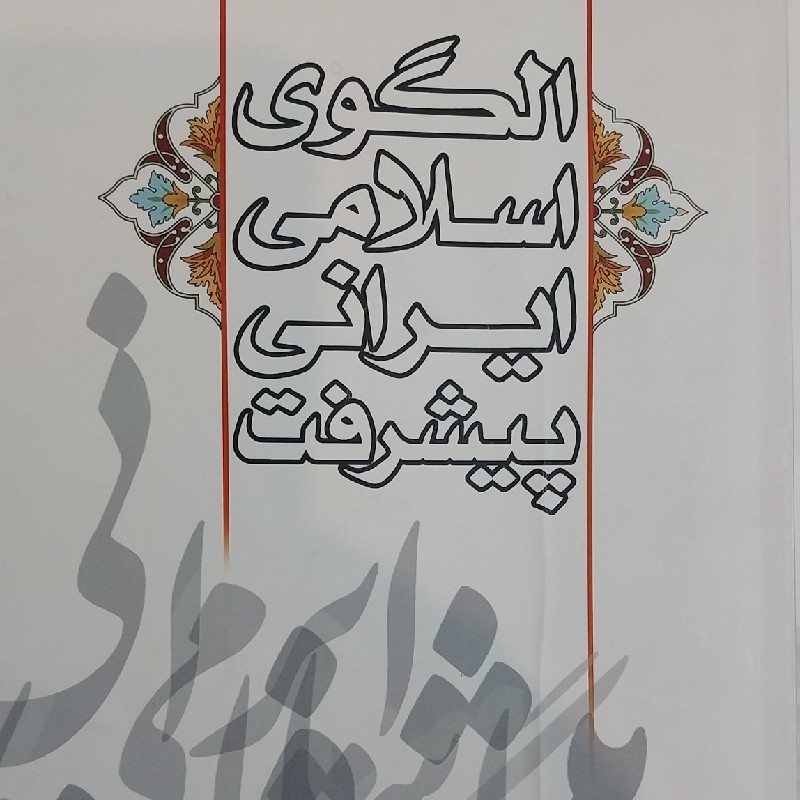 الگوی
اسلامی
ایرانی
پیشرفت